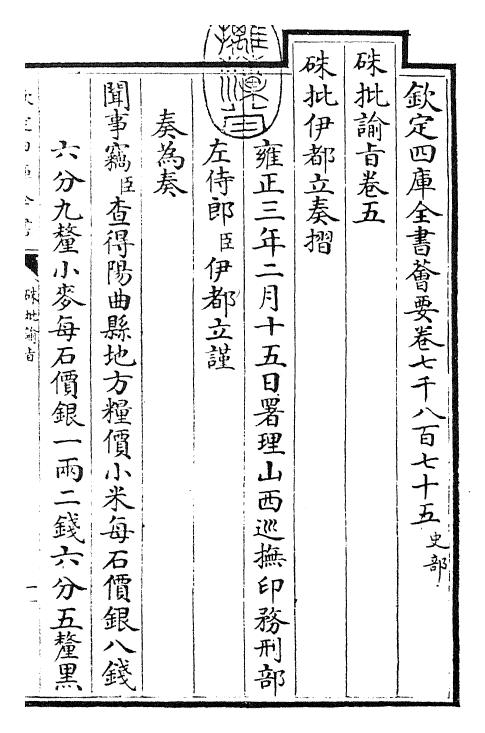 欽定四庫全書薈要卷七千八百七十五 史部
硃批諭旨卷五
硃批伊都立奏摺
雍正三年二月十五日署理山西巡撫印務刑部
左侍郎臣伊都立謹
奏為奏
聞事竊臣查得陽曲縣地方糧價小米每石價銀八錢
六分九釐小麥每石價銀一兩二錢六分五釐黑
硃批諭旨
一